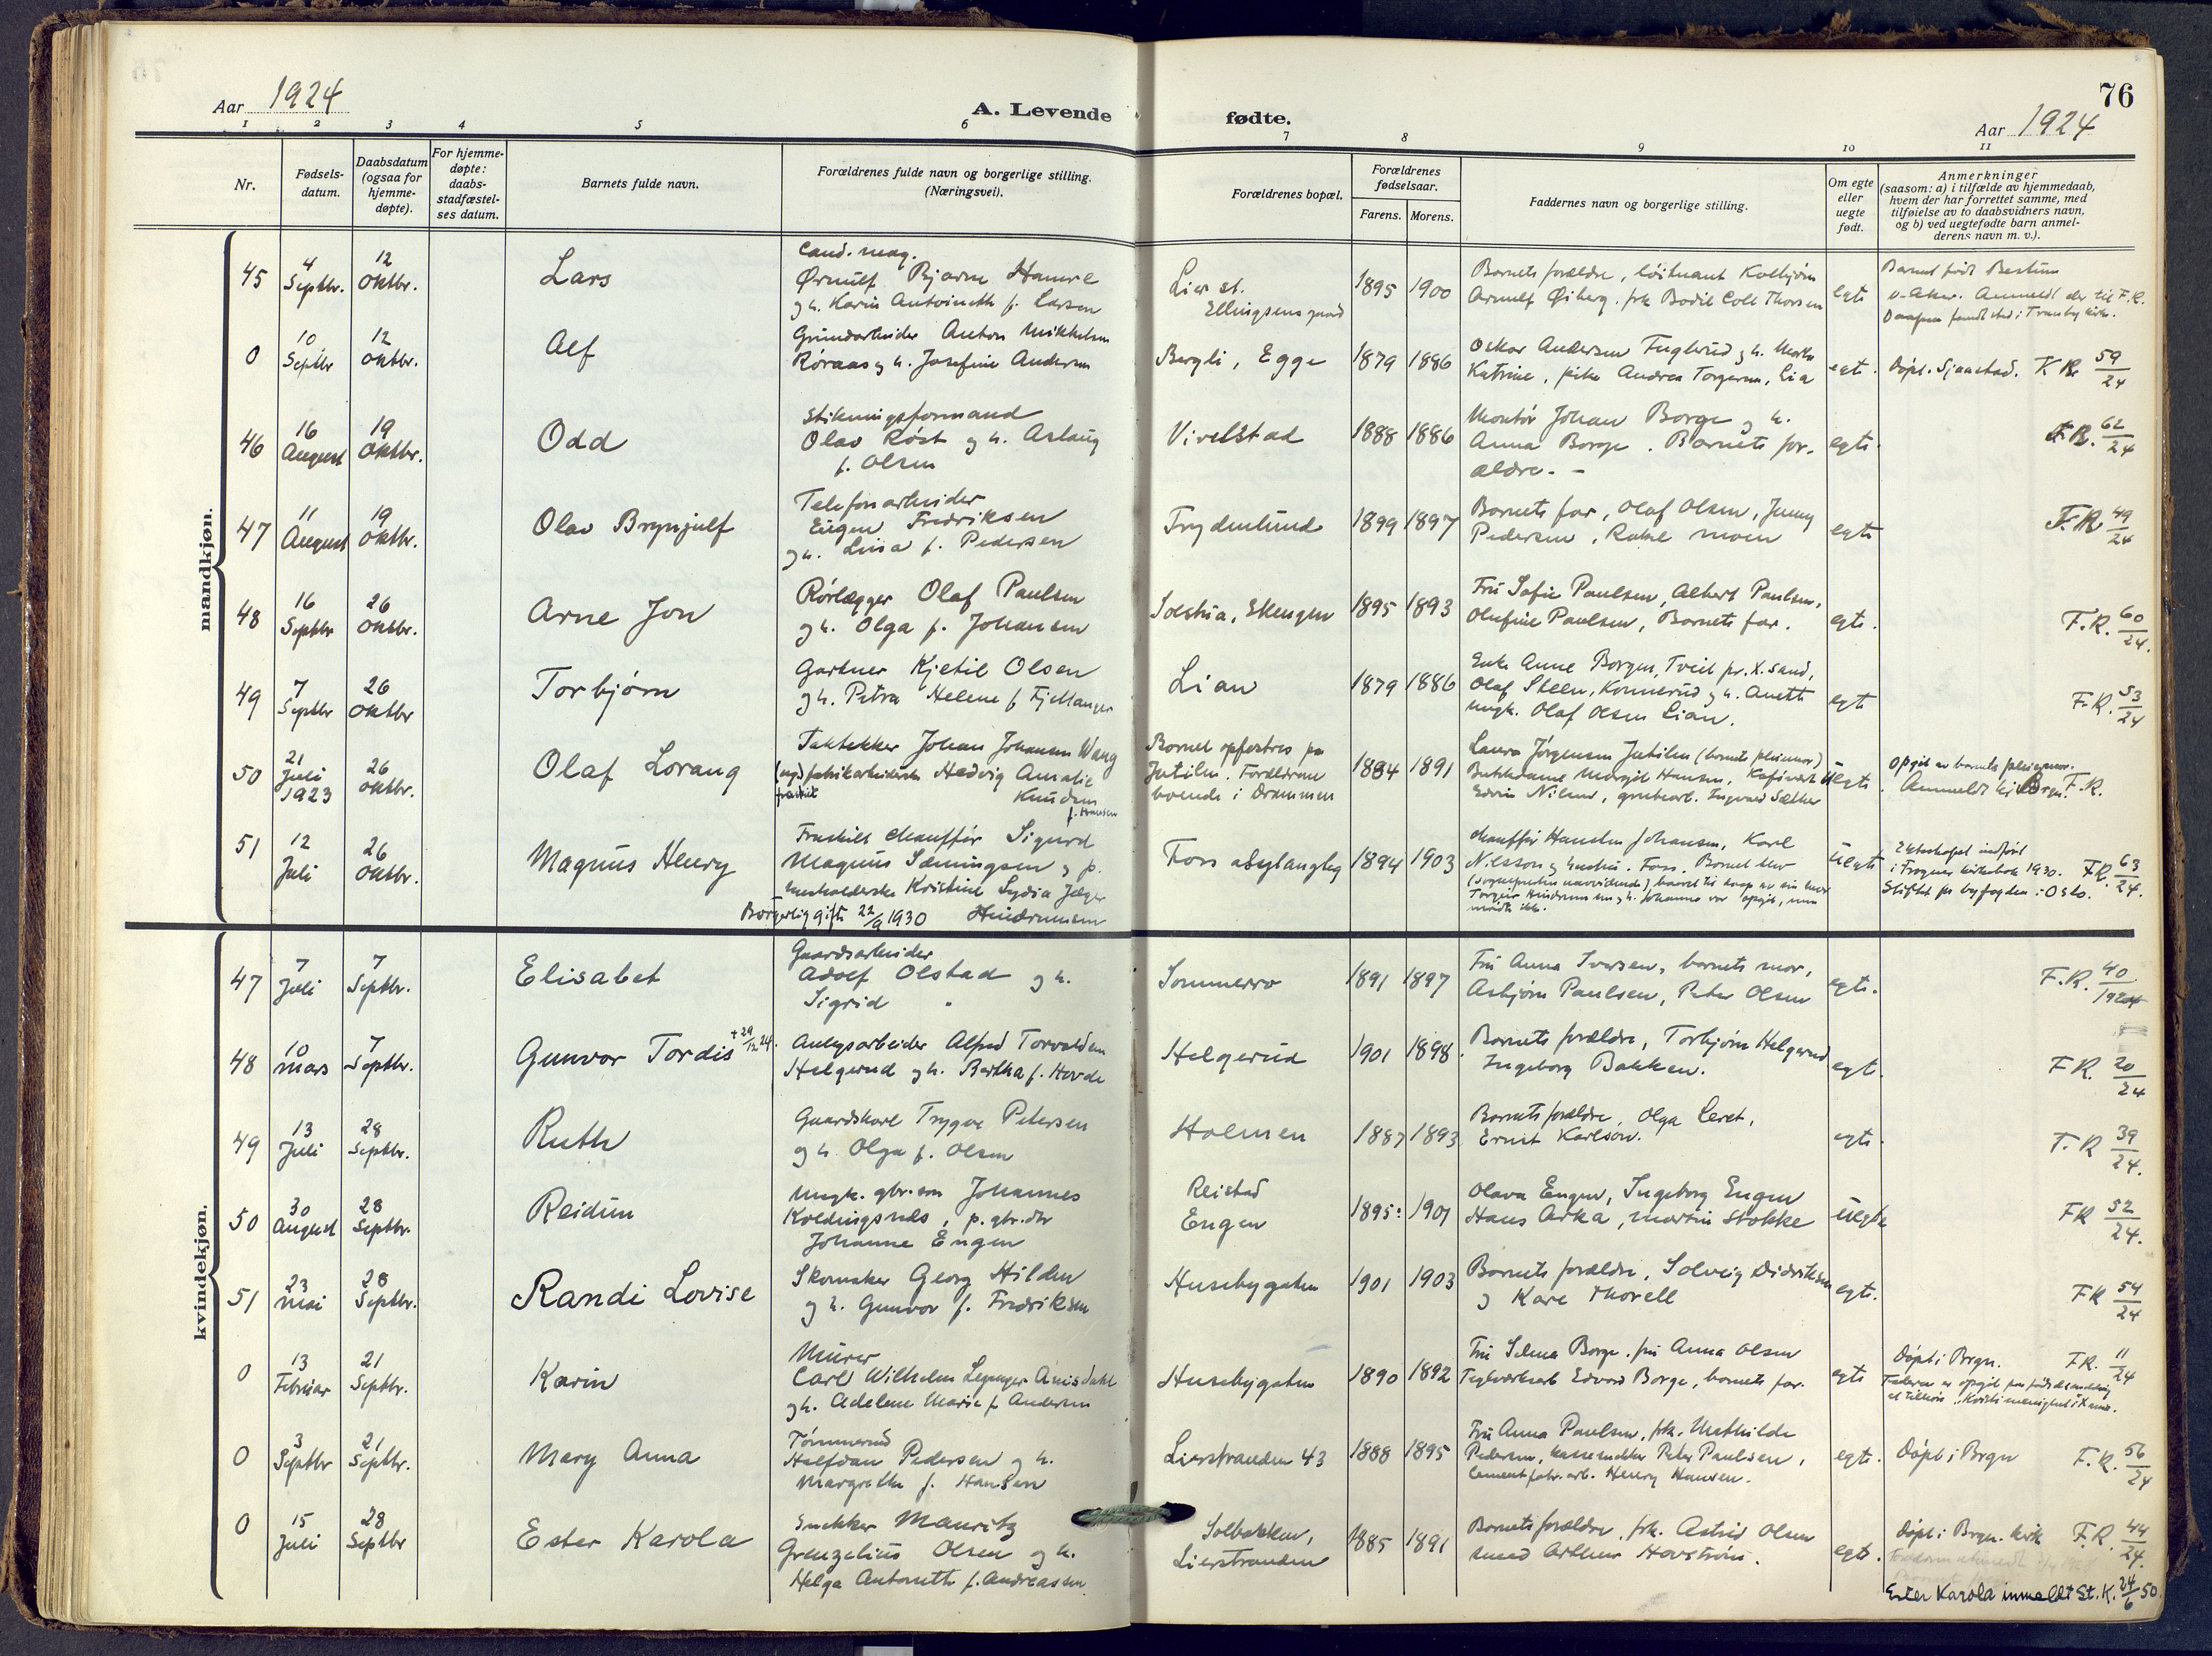 76
Aar 1924
A. Levende fødte.
Aar 1924
1 2 3 4 5 6 7 8 9 10 11
Nr.
Fødsels-
datum.
Daabsdatum
(ogsaa for
hjemme-
døpte).
For hjemme-
døpte:
daabs-
stadfæstel-
ses datum.
Barnets fulde navn.
Forældrenes fulde navn og borgerlige stilling.
(Næringsvei).
Forældrenes bopæl.
Forældrenes
fødselsaar.
Farens. Morens.
Faddernes navn og borgerlige stilling.
Om egte
eller
uegte
født.
Anmerkninger
(saasom: a) i tilfælde av hjemmedaab,
hvem der har forrettet samme, med
tilføielse av to daabsvidners navn,
og b) ved uegtefødte barn anmel-
derens navn m. v.).
mandkjøn.
45
4
Septbr.
12
Oktbr.
Lars
Cand. mag.
Ørnulf Bjarne Hamre
og h. Karin Antoineth f. Larsen
Lier st.
Ellingsensgaard
1895 1900
Barnets forældre, løitnant Kolbjørn
Arnulf Øiberg, frk Bodil Coll Thorsen
egte
Barnet født Bestum
v. Aker. Anmeldt der til F.R.
Daapen fandt sted i Tranby kirke.
0
10
Septbr
12
Oktbr.
Alf
Grundarbeider Anton Mikkelsen
Røraas og h. Josefine Andersen
Bergli, Egge
1879 1886
Oskar Andersen Fuglerud og h. Marta
Katrine, pike Andrea Torgersen, Lia
egt.
Døpt. Sjaastad. K R. 59/24
46
16
August
19
Oktbr.
Odd
Stikningsformand
Olav Røst og h. Aslaug
f. Olsen
Vivelstad
1888 1886
Montør Johan Borge og h.
Anna Borge. Barnets for-
ældre. -
egte.
F.R. 62/24
47
11
August
19
Oktbr.
Olav Brynjulf
Telefonarbeider
Eugen Fredriksen
og h. Lina f. Pedersen
Frydenlund
1899 1897
Barnets far, Olaf Olsen, Jenny
Pedersen, Rakel Moen
egte
F.R. 49/24
48
16
Septbr
26
Oktbr.
Arne Jon
Rørlægger Olaf Paulsen
og h. Olga f. Johansen
1895 1893
Fru Sofie Paulsen, Albert Paulsen,
Olufine Paulsen, Barnets far.
egte.
F.R. 60/24.
49
7
Septbr
26
Oktbr
Torbjørn
Gartner Kjetil Olsen
og h. Petra Helene f. Fjellanger
Lian
1879 1886
Enke Anne Borgen, Tveit pr. X.sand,
Olaf Steen, Konnerud og h. Anette
ungk. Olaf Olsen Lian.
egt
F.R. 53/24
50
21
Juli
1923
26
Oktbr.
Olaf Lorang
Taktekker Johan Johansen Wang
fabrikarbeiderske Hedvig Amalie
Knudsen
f. Hansen
Barnet opfostres på
Jutilen. Forældrene
boende i Drammen
1884 1891
Laura Jørgensen Jutilen (barnets pleiemor)
Margit Hansen,
Edvin Nilsen, Ingvald Sæther
Uegte
Opgit av barnets pleiemor.
Anmeldt til Brgn. F.R.
51
12
Juli
26
Oktbr.
Magnus Henry
Fraskilt chauffør Sigurd
Magnus Sæmingsen og p.
husholderske Kristine Lydia Jæger
Hindrumsen
Borgerlig gift 22/9 1930
Fors asylanglæg
1894 1903
chauffør Johansen, Karl
Nilsson og hustru. Fors. Barnets mor
Uegte
Ekteskapet indført
i Frogner kirkebok 1930. F.R. 63/24.
Stiftet for byfogden i Oslo.
kvindekjøn.
47
7
Juli
7
Septbr.
Elisabet
Gaardsarbeider
Adolf Olstad og h.
Sigrid "
Sommerro
1891 1897
Fru Anna Iversen, barnets mor,
Asbjørn Paulsen, Peter Olsen
egte.
F.R. 40/1924
48
10
Mars
7
Septbr.
Gunvor Tordis + 29/12 24.
Anlegsarbeider Alfred Torvaldsen
Helgerud og h. Bertha f. Hovde
Helgerud
1901 1898.
Barnets forældre, Torbjørn Helgerud
Ingeborg Bakken.
egt.
F R. 20/24
49
13
Juli
28
Septbr.
Ruth
Gaardskarl Trygve Petersen
og h. Olga f. Olsen
Holmen
1887 1893
Barnets forældre, Olga Leret,
Ernst Karlson.
egte.
F.R 39/24.
50
30
August
28
Septbr.
Reidun
Ungk. gbr.søn Johannes
Koldingsnes, p. gbr.dtr
Johanne Engen
Reistad
Engen
1895: 1901
Olava Engen, Ingeborg Engen
Hans Arka, Martin Stokke
uegte
FR 52/24.
51
23
Mai
28
Septbr.
Randi Lovise
Skomaker Georg Hilden
og h. Gunvor f. Fredriksen
Husebygaten
1901 1903
Barnets forældre, Solveig Didriksen
og Kåre Thorell
egte.
FR 54/24
0
13
Februar
21
Septbr.
Karin
Murer
Carl Wilhelm Amisdahl
og h. Adelene Marie f. Andersen
Husebygaten
1890 1892
Fru Selma Borge, fru Anna Olsen
Teglverksarb Edvard Borge, barnets far.
egte
Døpt i Brgn. FR. 11/24
0
3
Septbr
21
Septbr.
Mary Anna
Tømmermd
Halfdan Pedersen og h.
Margrethe f. Hansen
Lierstranden 43
1888 1895
Fru Anna Paulsen, frk. Mathilde
Pedersen, Peter Paulsen,
Cementfabr.arb. Henry Hansen.
egte.
Døpt i Brgn F.R. 56/24
0
15
Juli
28
Septbr
Ester Karola
Snekker Mauritz
Grenzelius Olsen og h.
Helga Antonette f. Andreassen
Solbakken,
Lierstranden
1885 1891
Barnets forældre, frk. Astrid Olsen
smed Arthur Havstrøm.
egte.
Døpt i Brgn. kirke F.R. 44/24.
Ester Karola innmeldt St.K. 24/6 50.